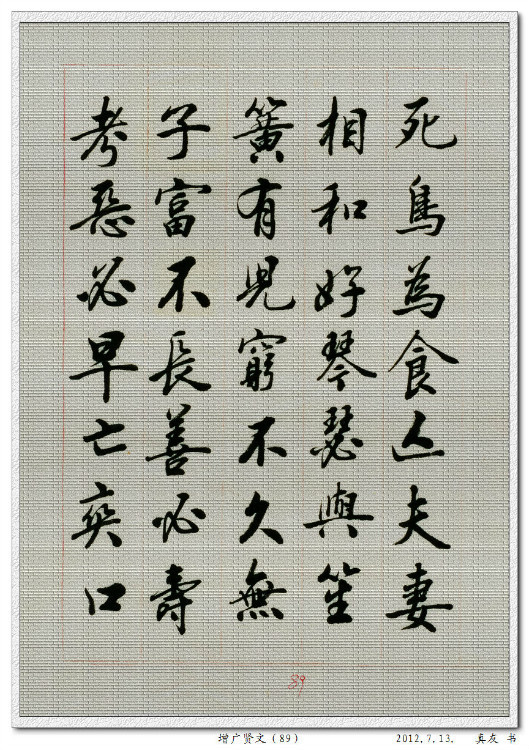 死鳥為食亾夫妻
相和好琴瑟與笙
簧有兒窮不久無
子富不長善必壽
考惡必早亡爽口
89
增广贤文（89）
2012.7.13. 真友 书